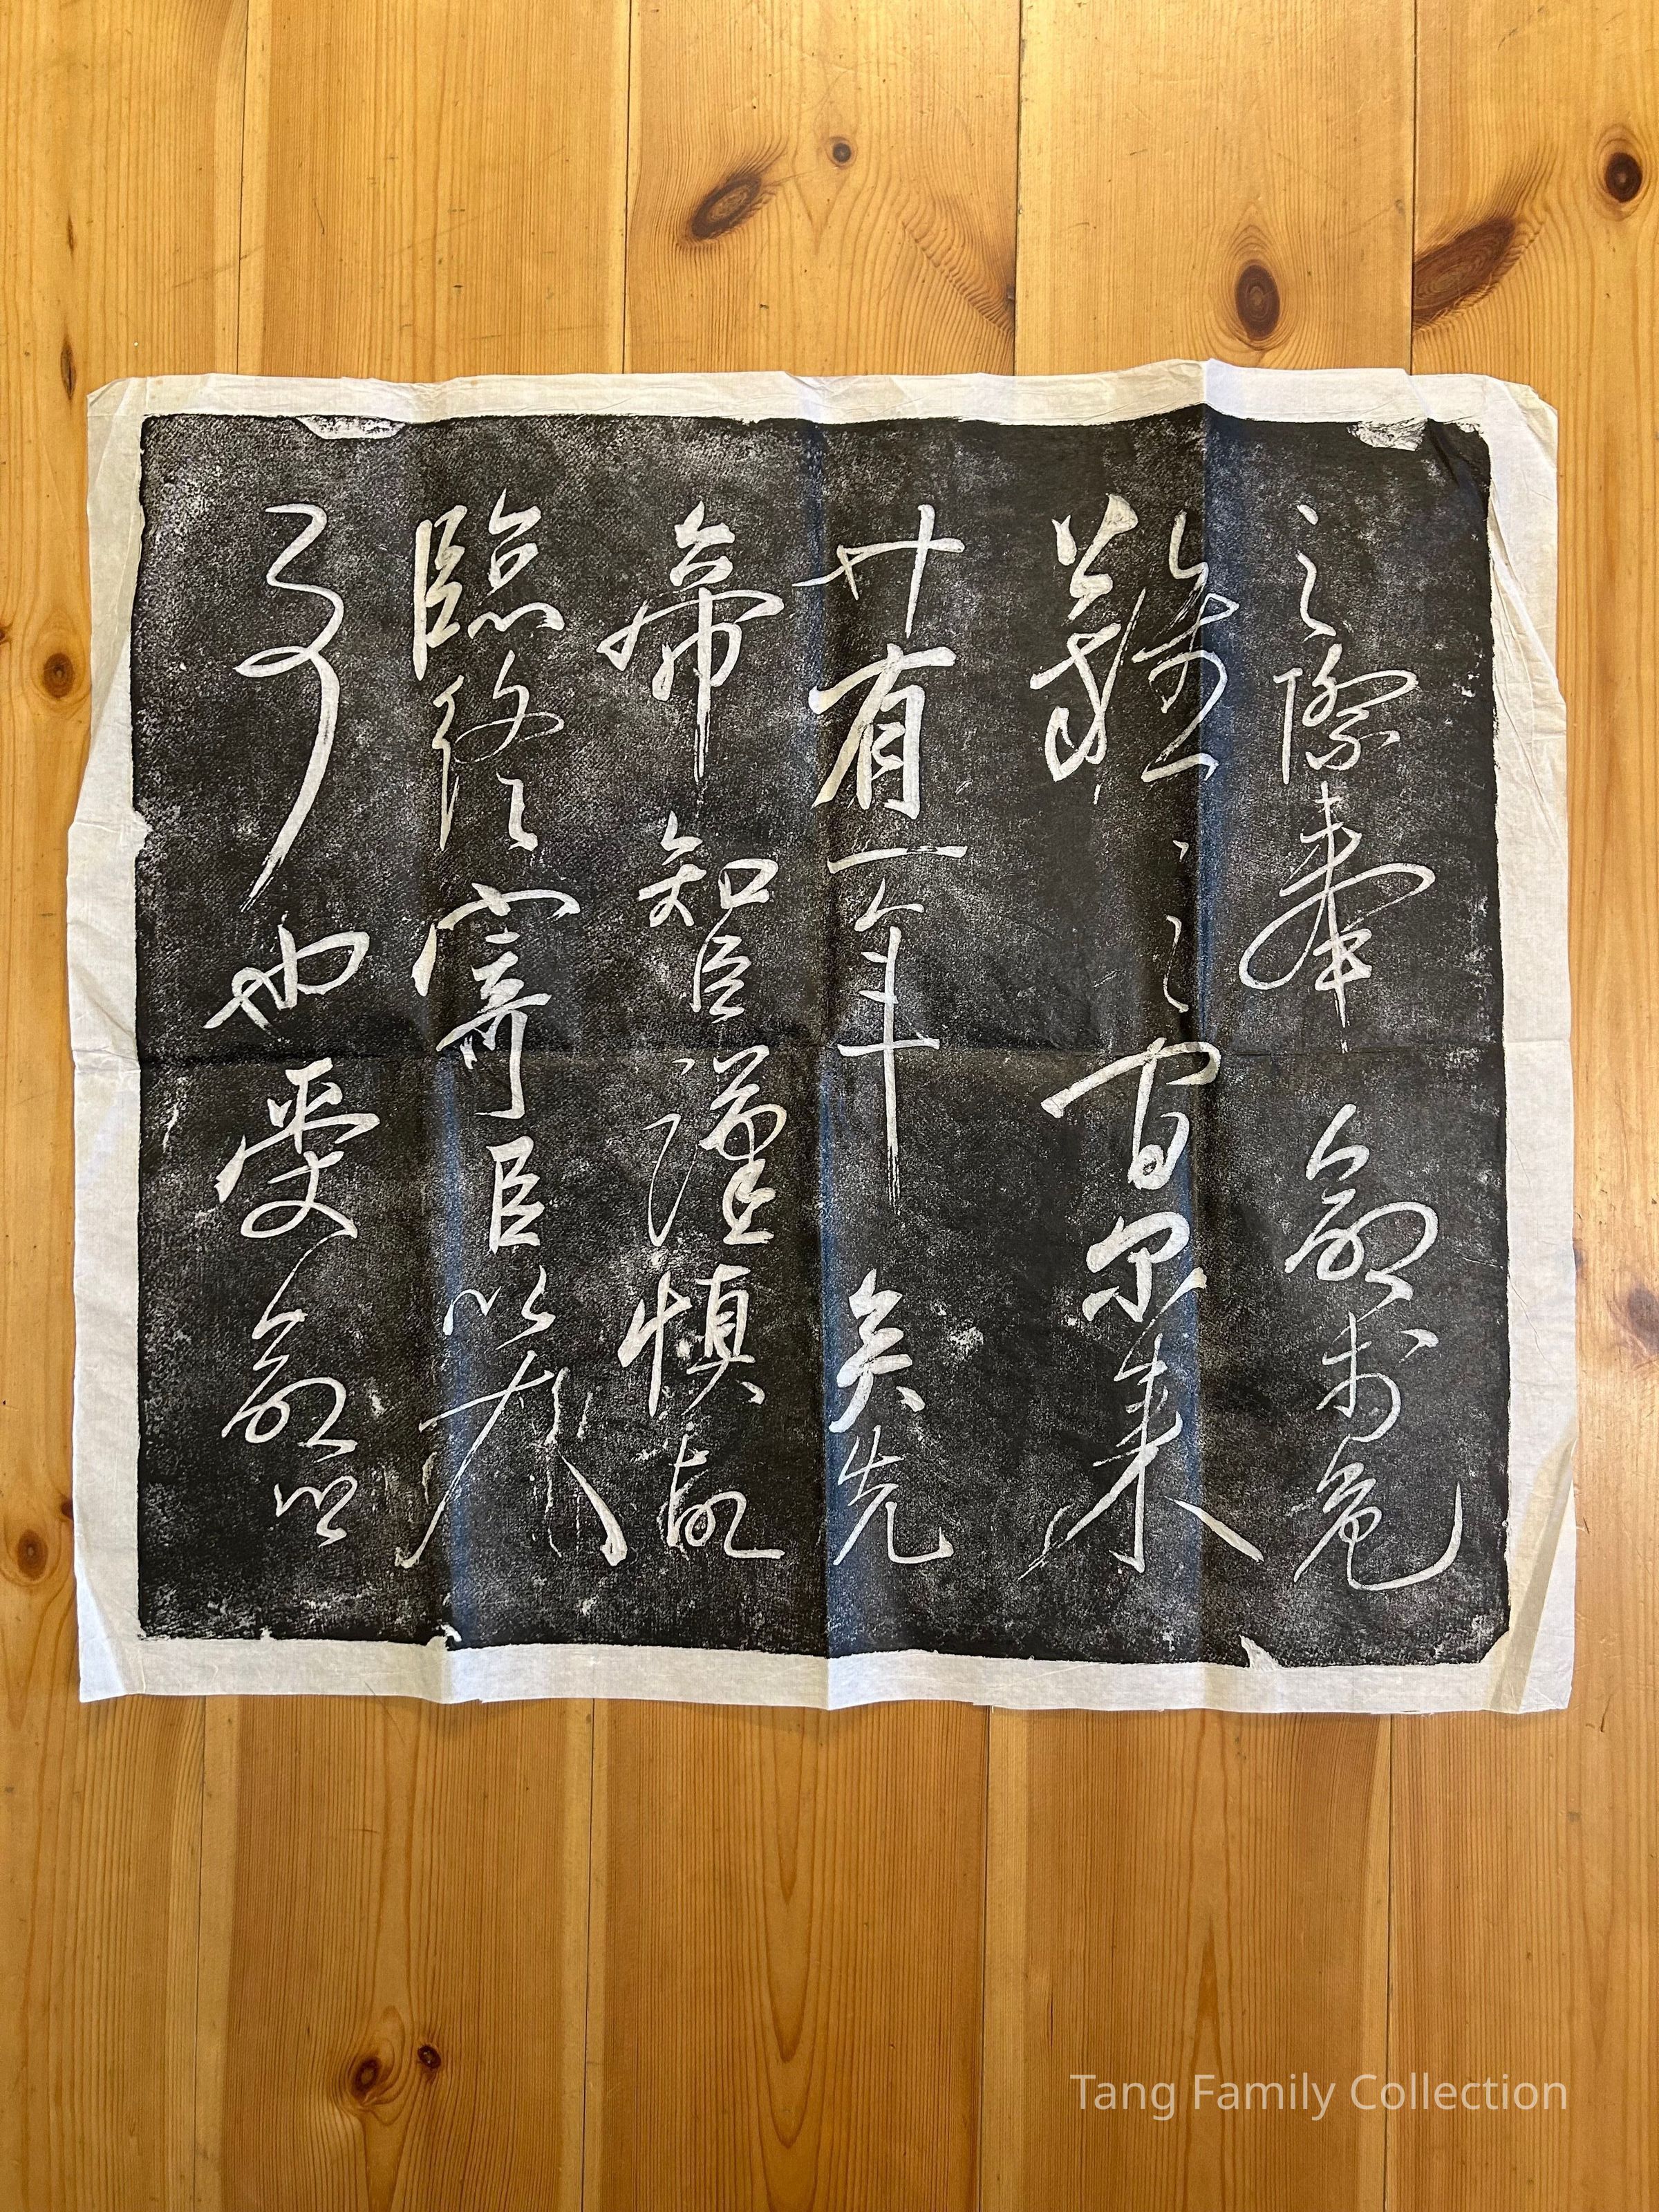 之際奉命於危
難之間尔来
廿有一年矣先
帝知臣謹慎故
臨終寄臣以大
事也受命以
Tang Family Collection